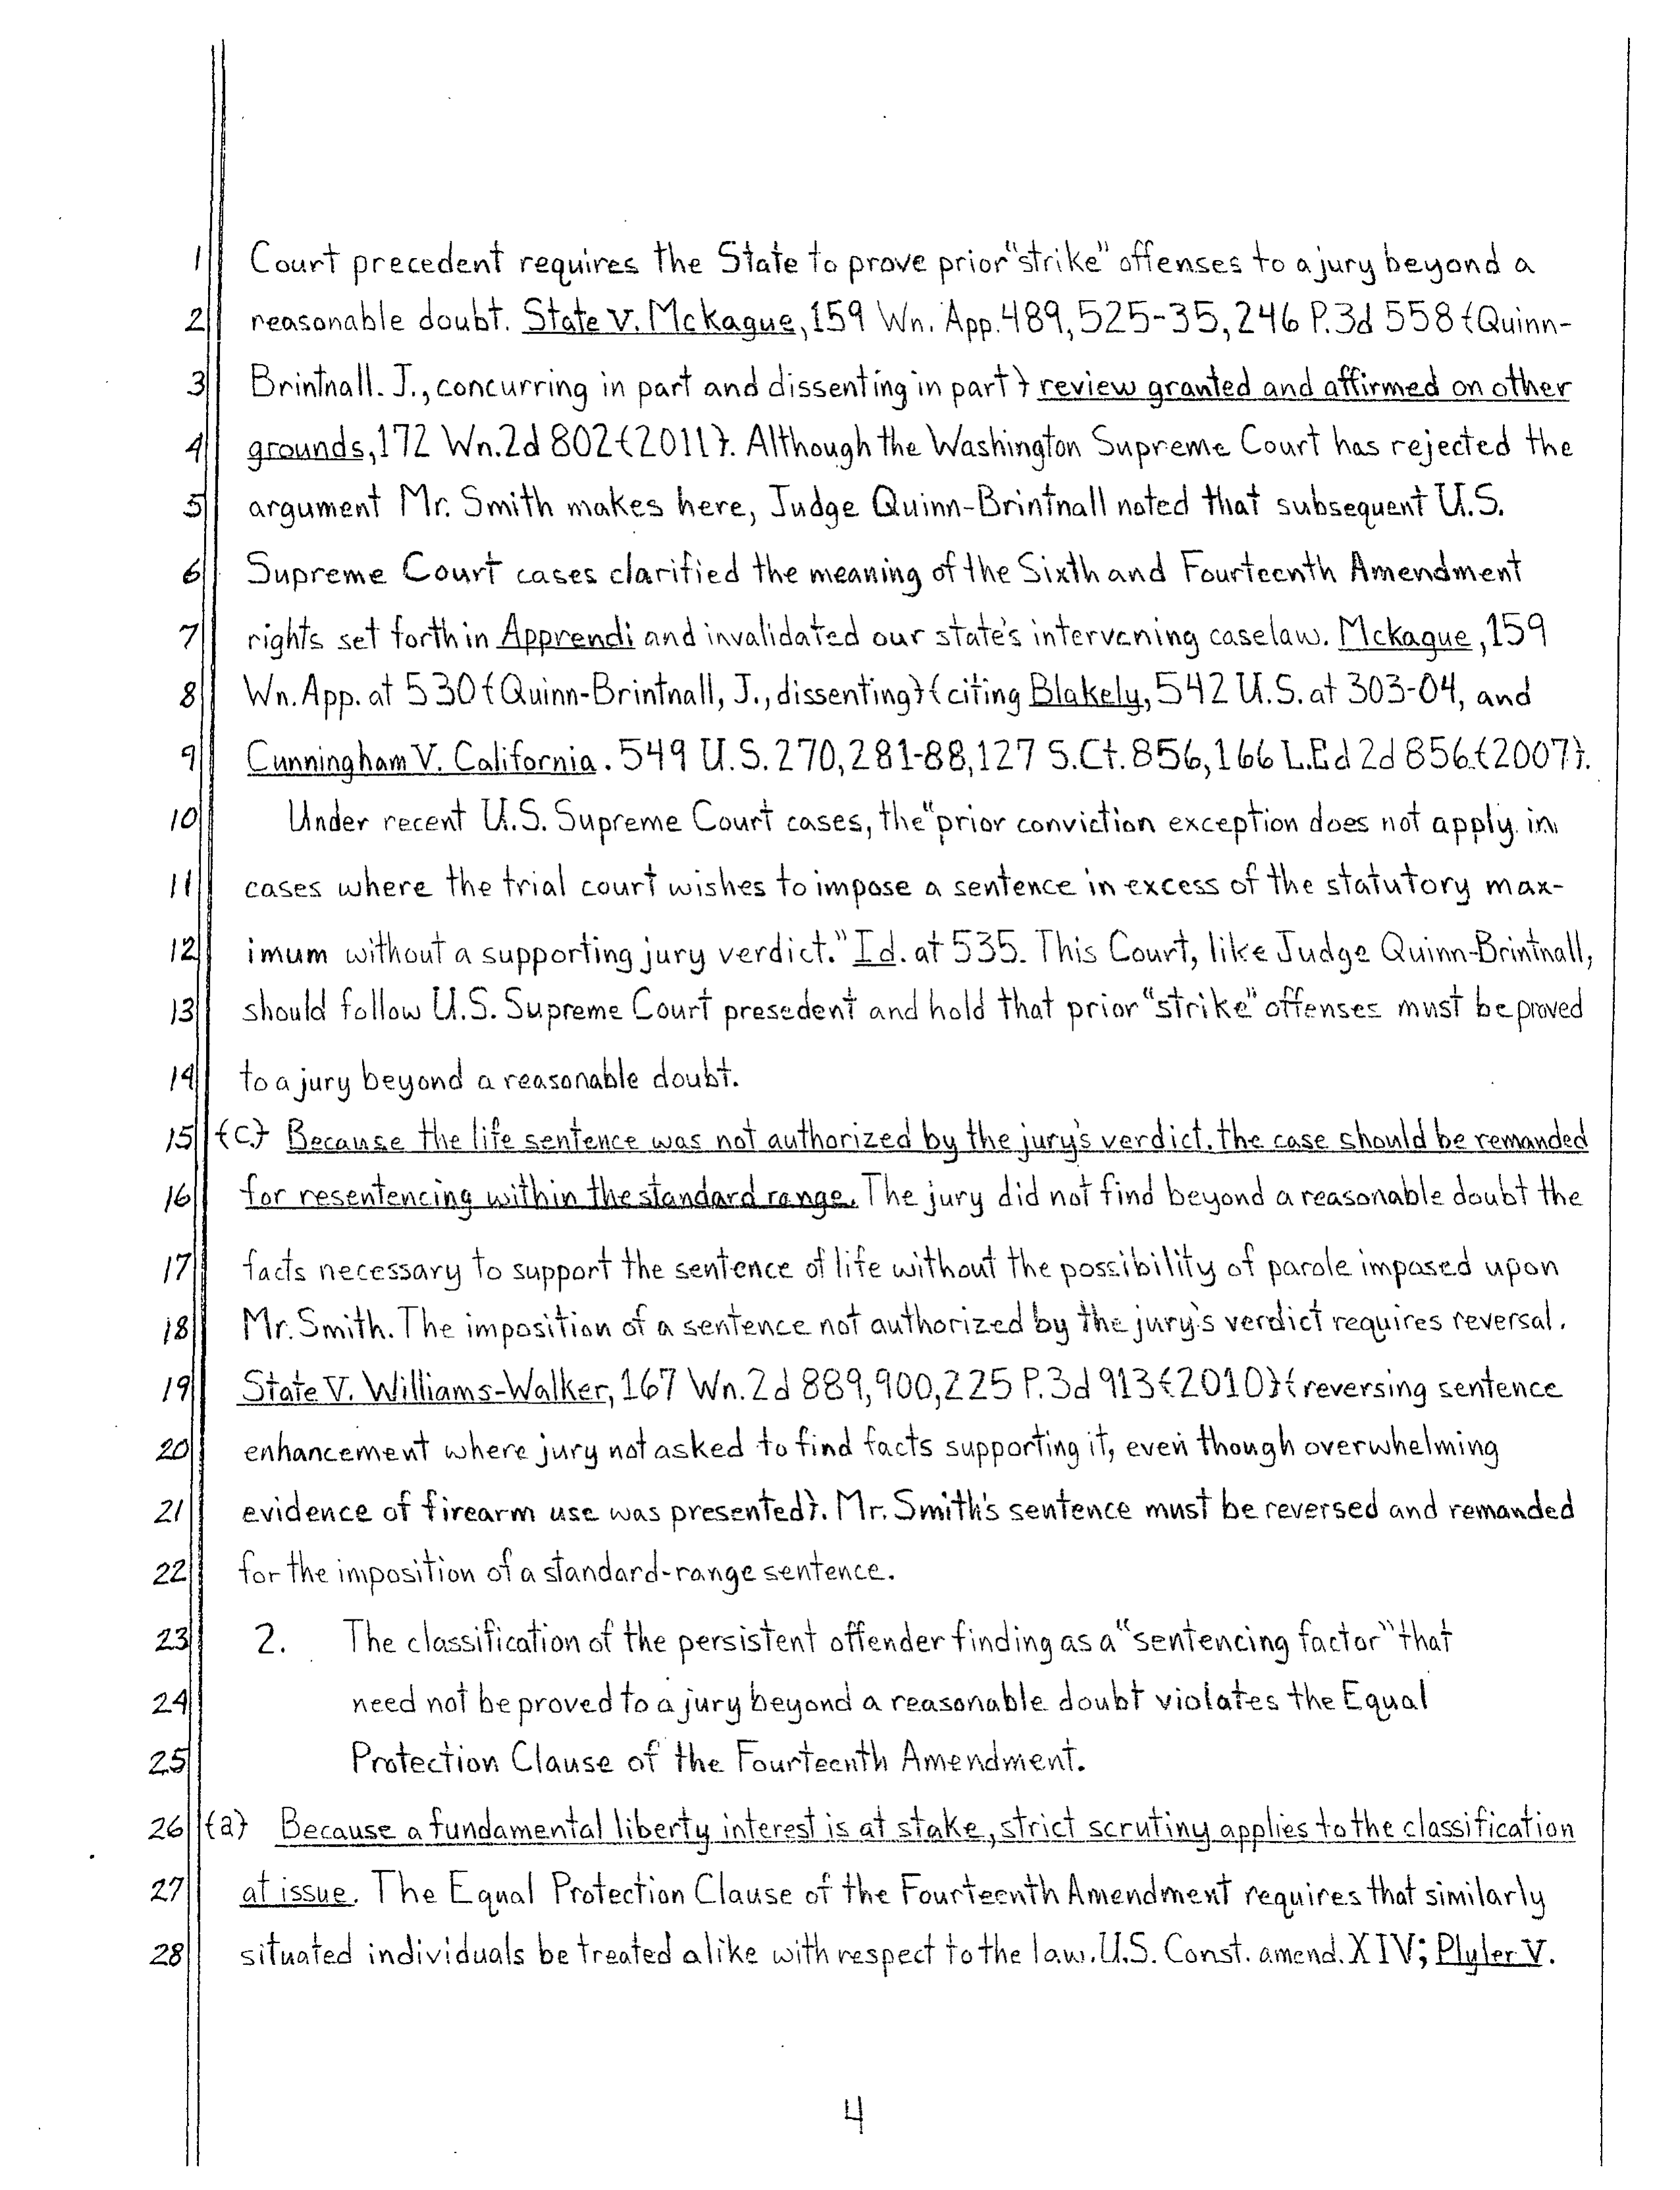 1 Court precedent requires the State to prove prior "strike" offenses to a jury beyond a
2 reasonable doubt. State v. Mckague, 159 Wn. App. 489, 525-35, 246 P.3d 558 {Quinn-
3 Brintnall. J., concurring in part and dissenting in part} review granted and affirmed on other
4 grounds, 172 Wn.2d 802 {2011}. Although the Washington Supreme Court has rejected the
5 argument Mr. Smith makes here, Judge Quinn-Brintnall noted that subsequent U.S.
6 Supreme Court cases clarified the meaning of the Sixth and Fourteenth Amendment
7 rights set forth in Apprendi and invalidated our state's intervening caselaw. Mckague, 159
8 Wn. App. at 530 {Quinn-Brintnall, J., dissenting} {citing Blakely, 542 U.S. at 303-04, and
9 Cunningham V. California. 549 U.S. 270, 281-88, 127 S.Ct. 856, 166 L.Ed 2d 856 {2007}.
10 Under recent U.S. Supreme Court cases, the "prior conviction exception does not apply in
11 cases where the trial court wishes to impose a sentence in excess of the statutory max-
12 imum without a supporting jury verdict." Id. at 535. This Court, like Judge Quinn-Brintnall,
13 should follow U.S. Supreme Court presedent and hold that prior "strike" offenses must be proved
14 to a jury beyond a reasonable doubt.
15 {c} Because the life sentence was not authorized by the jury's verdict. the case should be remanded
16 for resentencing within the standard range. The jury did not find beyond a reasonable doubt the
17 facts necessary to support the sentence of life without the possibility of parole imposed upon
18 Mr. Smith. The imposition of a sentence not authorized by the jury's verdict requires reversal.
19 State V. Williams-Walker, 167 Wn.2d 889, 900, 225 P.3d 913 {2010} {reversing sentence
20 enhancement where jury not asked to find facts supporting it, even though overwhelming
21 evidence of firearm use was presented}. Mr. Smith's sentence must be reversed and remanded
22 for the imposition of a standard-range sentence.
23 2. The classification of the persistent offender finding as a "sentencing factor" that
24 need not be proved to a jury beyond a reasonable doubt violates the Equal
25 Protection Clause of the Fourteenth Amendment.
26 {a} Because a fundamental liberty interest is at stake, strict scrutiny applies to the classification
27 at issue. The Equal Protection Clause of the Fourteenth Amendment requires that similarly
28 situated individuals be treated alike with respect to the law. U.S. Const. amend. XIV; Plyler V.
4